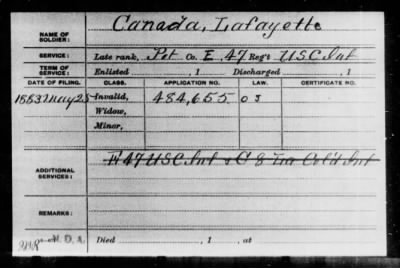 NAME OF SOLDIER: Canada, Lafayette
SERVICE: Late rank, Pvt Co. E, 47 Reg't U.S.C. Inf
TERM OF SERVICE: Enlisted , 1 Discharged , 1
DATE OF FILING. CLASS. APPLICATION NO. LAW. CERTIFICATE NO.
1883 May 25 Invalid, 484,655
Widow,
Minor,
ADDITIONAL SERVICES: F 47 U.S.C. Inf & C 8 La Col'd Inf
REMARKS:
Died , 1 , at